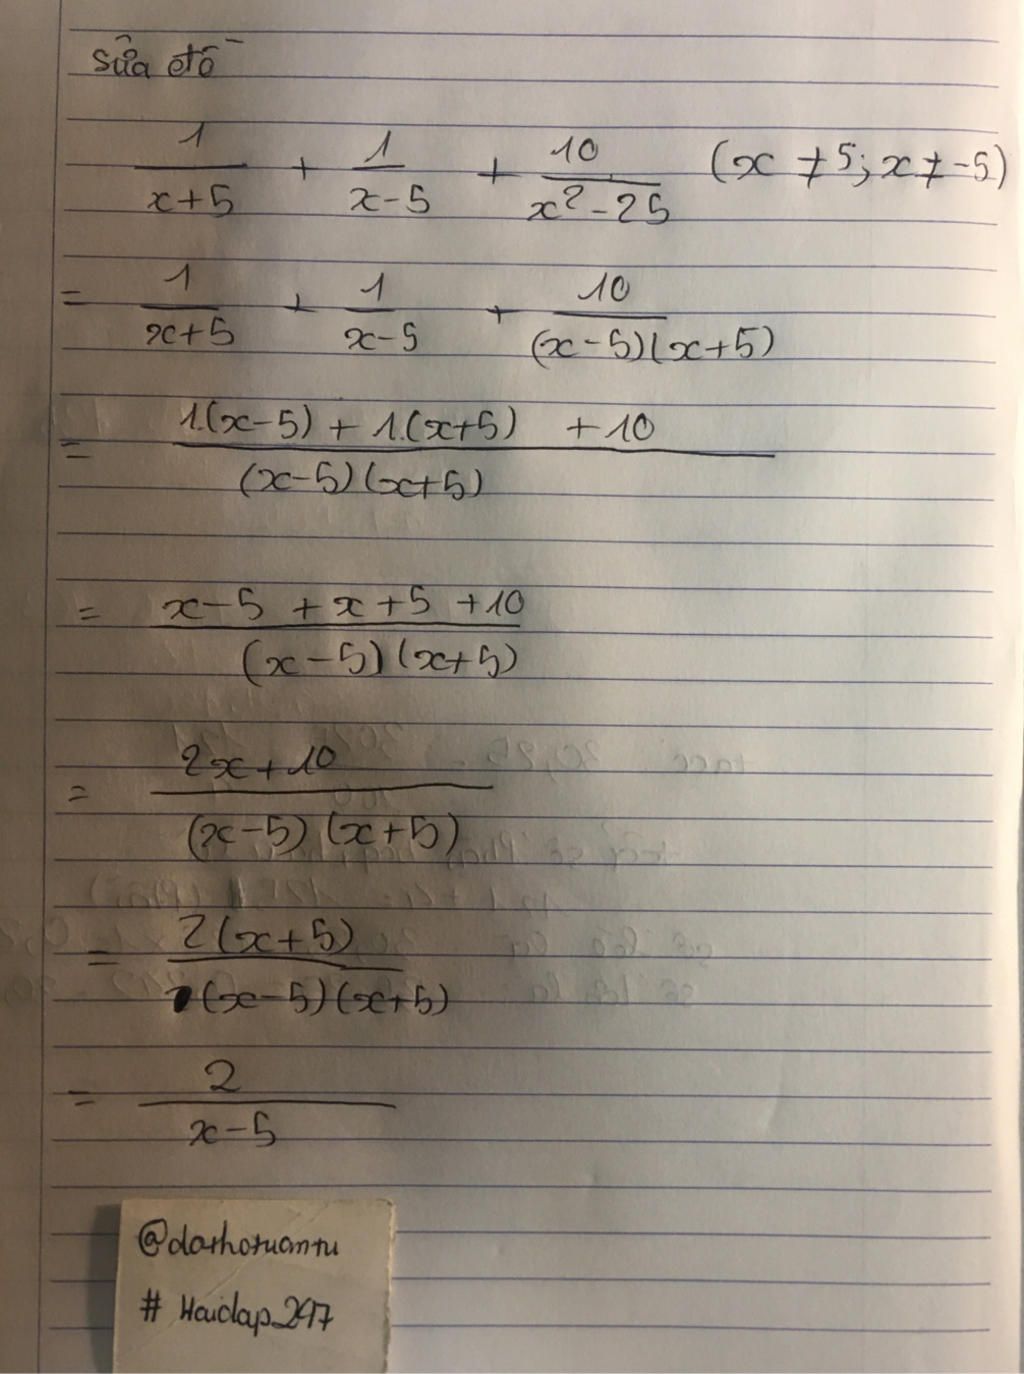 Sửa đề
1/(x+5) + 1/(x-5) + 10/(x²-25) (x ≠ 5; x ≠ -5)
= 1/(x+5) + 1/(x-5) + 10/((x-5)(x+5))
= (1.(x-5) + 1.(x+5) + 10)/((x-5)(x+5))
= (x-5 + x+5 +10)/((x-5)(x+5))
= (2x+10)/((x-5)(x+5))
= (2(x+5))/((x-5)(x+5))
= 2/(x-5)
# Haidap_247